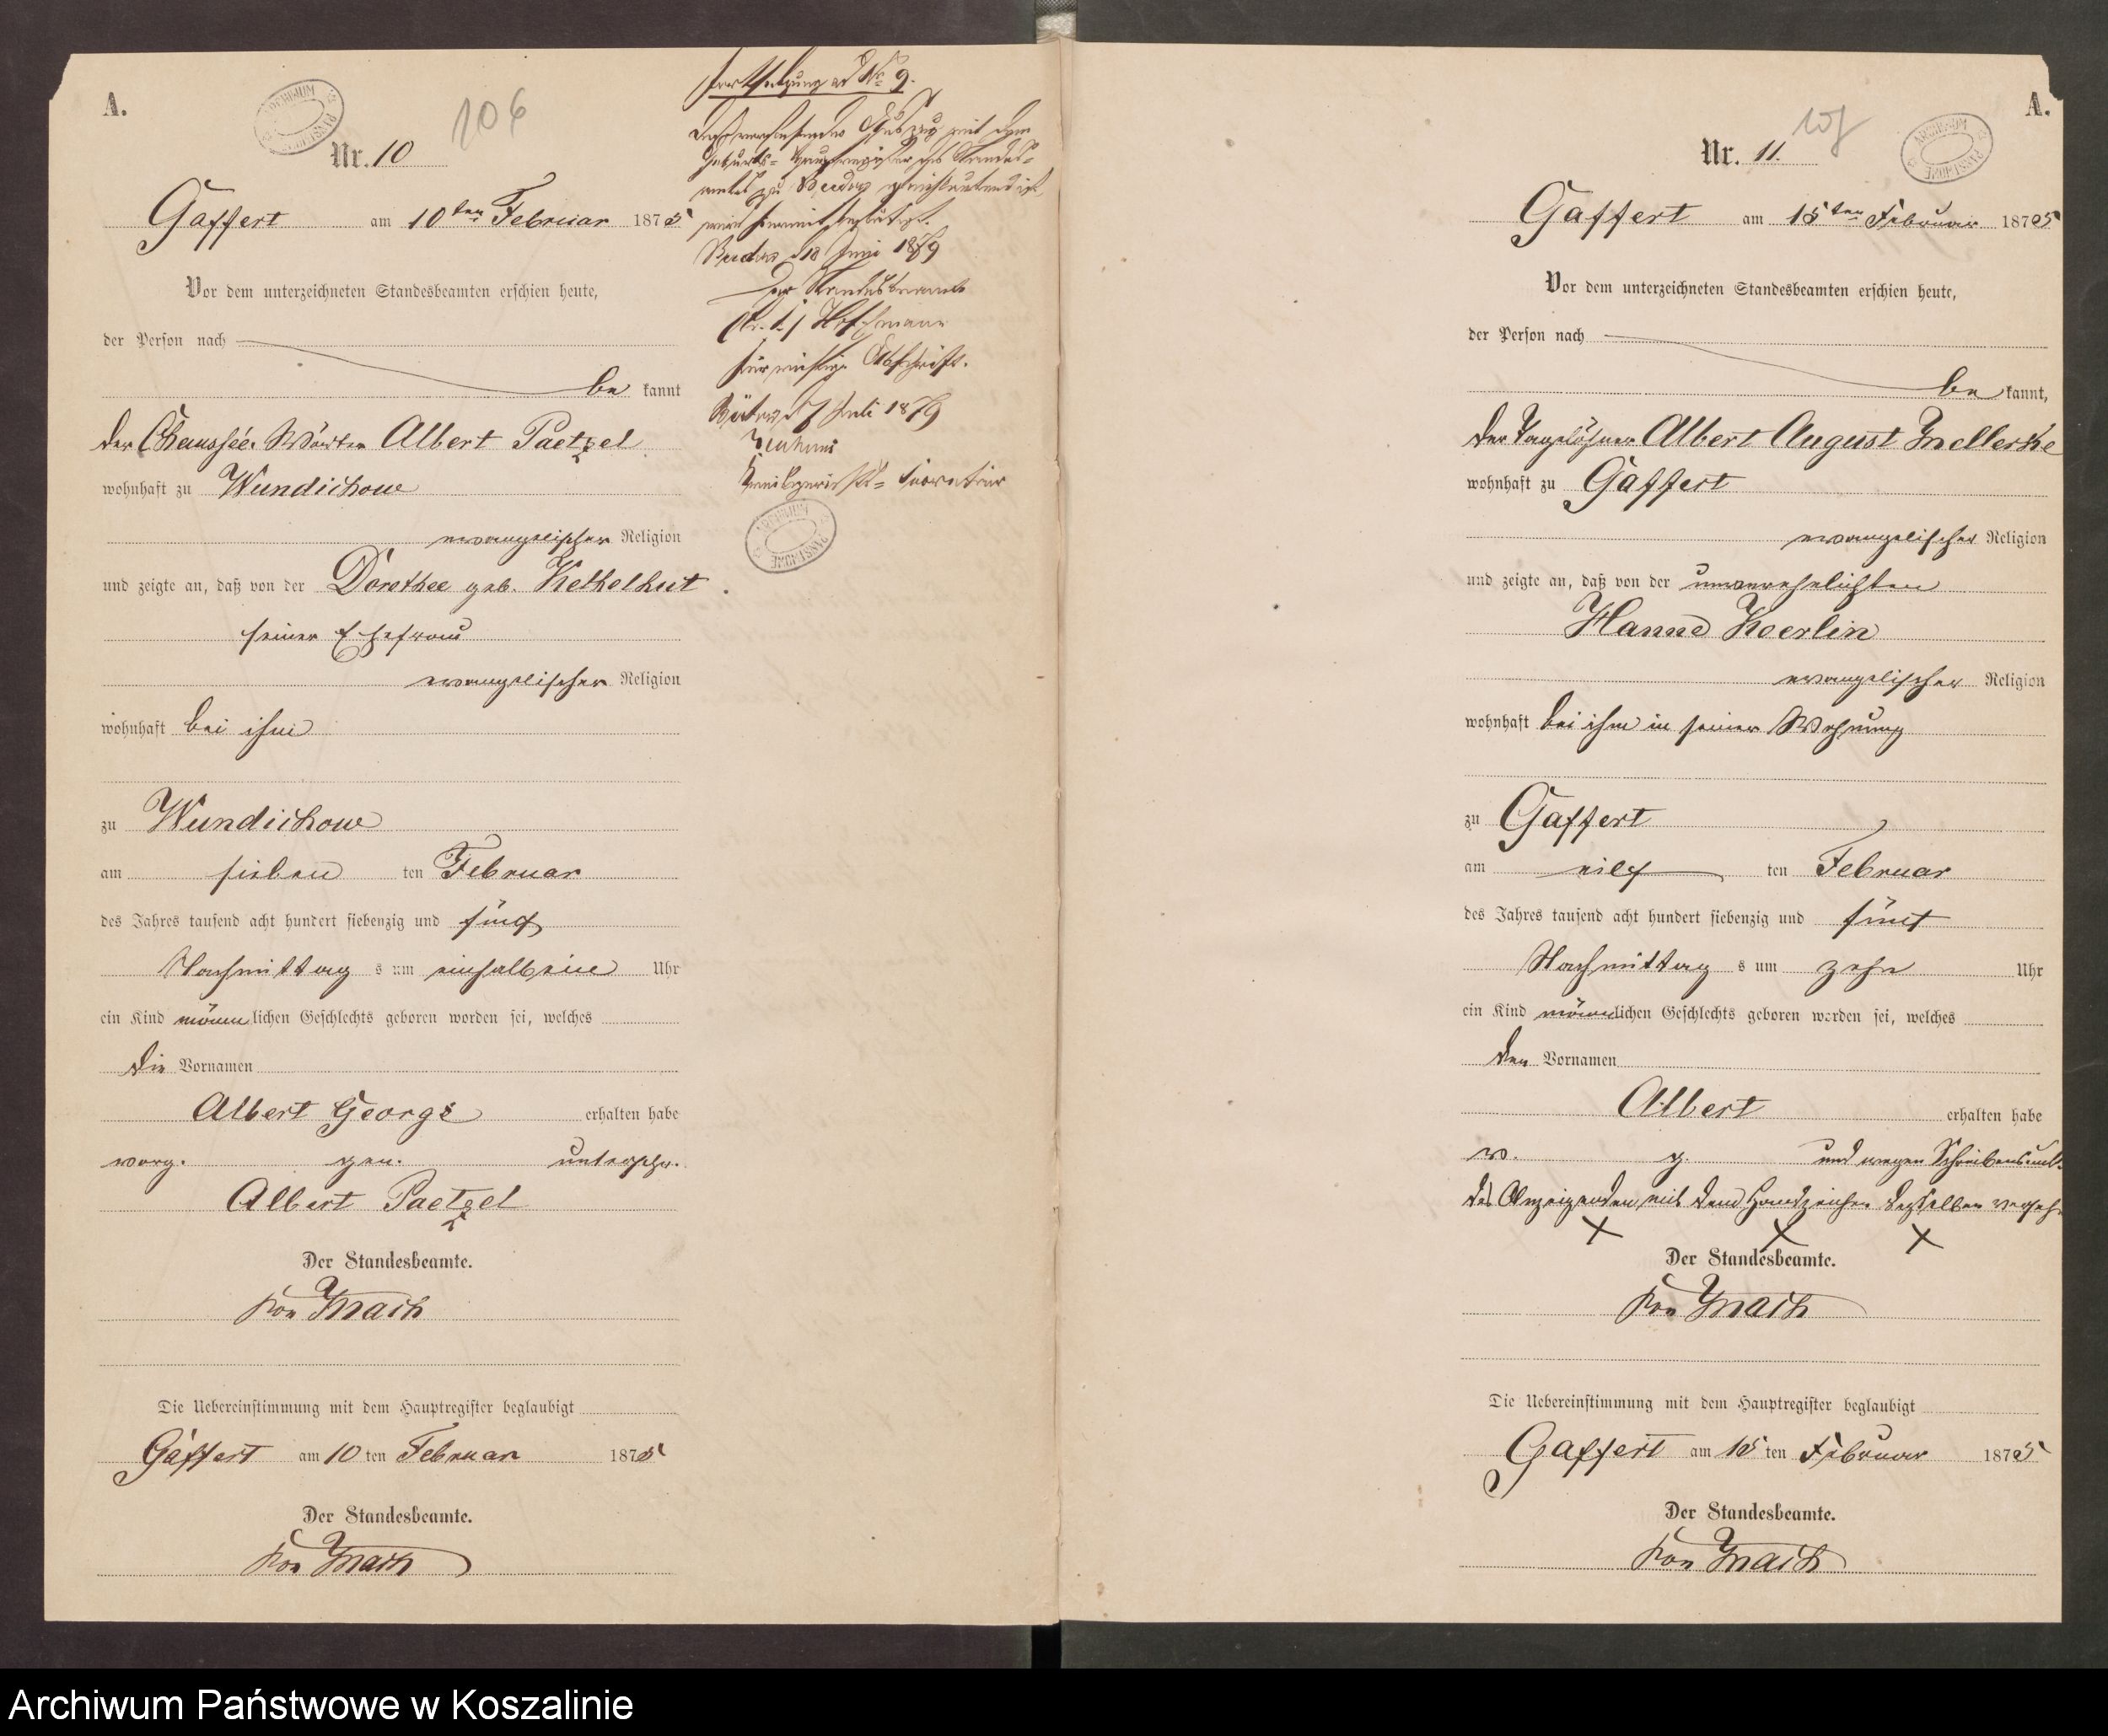 A.
ARCHIWUM PAŃSTWOWE
106
Nr. 10
Gaffert am 10ten Februar 1875
Vor dem unterzeichneten Standesbeamten erschien heute,
der Person nach
be kannt
der Chaussée-Wärter Albert Paetzel
wohnhaft zu Wundichow
evangelischer Religion
und zeigte an, daß von der Dorothee geb. Kethelhut
seiner Ehefrau
evangelischer Religion
wohnhaft bei ihm
zu Wundichow
am sieben ten Februar
des Jahres tausend acht hundert siebenzig und fünf
Nachmittag s um einhalb ein Uhr
ein Kind männlichen Geschlechts geboren worden sei, welches
die Vornamen
Albert George erhalten habe
vorg. gen. unterschr.
Albert Paetzel
Der Standesbeamte.
von Mach
Die Uebereinstimmung mit dem Hauptregister beglaubigt
Gaffert am 10 ten Februar 1875
Der Standesbeamte.
von Mach
Fortsetzung ad No 9.
Daß vorstehender Auszug mit dem
Geburts-Hauptregister des Standes-
amtes zu gleichlautend ist,
wird hiermit bestätigt.
d 18 Juni 1879
Der Standesbeamte
Hoffmann
für richtige Abschrift.
Bütow d 7 Juli 1879
Kreisgerichts-Secretair
ARCHIWUM PAŃSTWOWE
A.
107
ARCHIWUM PAŃSTWOWE
Nr. 11.
Gaffert am 15ten Februar 1875
Vor dem unterzeichneten Standesbeamten erschien heute,
der Person nach
be kannt,
der Tagelöhner Albert August Mellerke
wohnhaft zu Gaffert
evangelischer Religion
und zeigte an, daß von der unverehelichten
Hanne Koerlin
evangelischer Religion
wohnhaft bei ihm in seiner Wohnung
zu Gaffert
am eilf ten Februar
des Jahres tausend acht hundert siebenzig und fünf
Nachmittag s um zehn Uhr
ein Kind männlichen Geschlechts geboren worden sei, welches
den Vornamen
Albert erhalten habe
v. g. und wegen Schreibensunk.
des Anzeigenden mit dem Handzeichen desselben verseh.
X X X
Der Standesbeamte.
von Mach
Die Uebereinstimmung mit dem Hauptregister beglaubigt
Gaffert am 15 ten Februar 1875
Der Standesbeamte.
von Mach
Archiwum Państwowe w Koszalinie